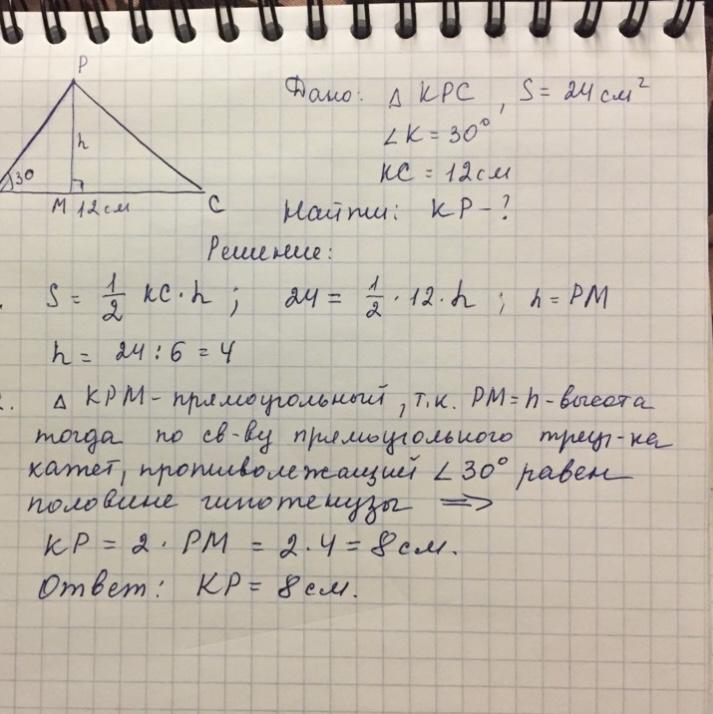 P
h
30
M 12см C
Дано: Δ KPC, S = 24 см²
∠K = 30°
KC = 12 см
Найти: KP - ?
Решение:
S = 1/2 KC · h ; 24 = 1/2 · 12 · h ; h = PM
h = 24 : 6 = 4
. Δ KPM - прямоугольный, т.к. PM = h - высота
тогда по св-ву прямоугольного треуг-ка
катет, противолежащий ∠30° равен
половине гипотенузы =>
KP = 2 · PM = 2 · 4 = 8 см.
Ответ: KP = 8 см.